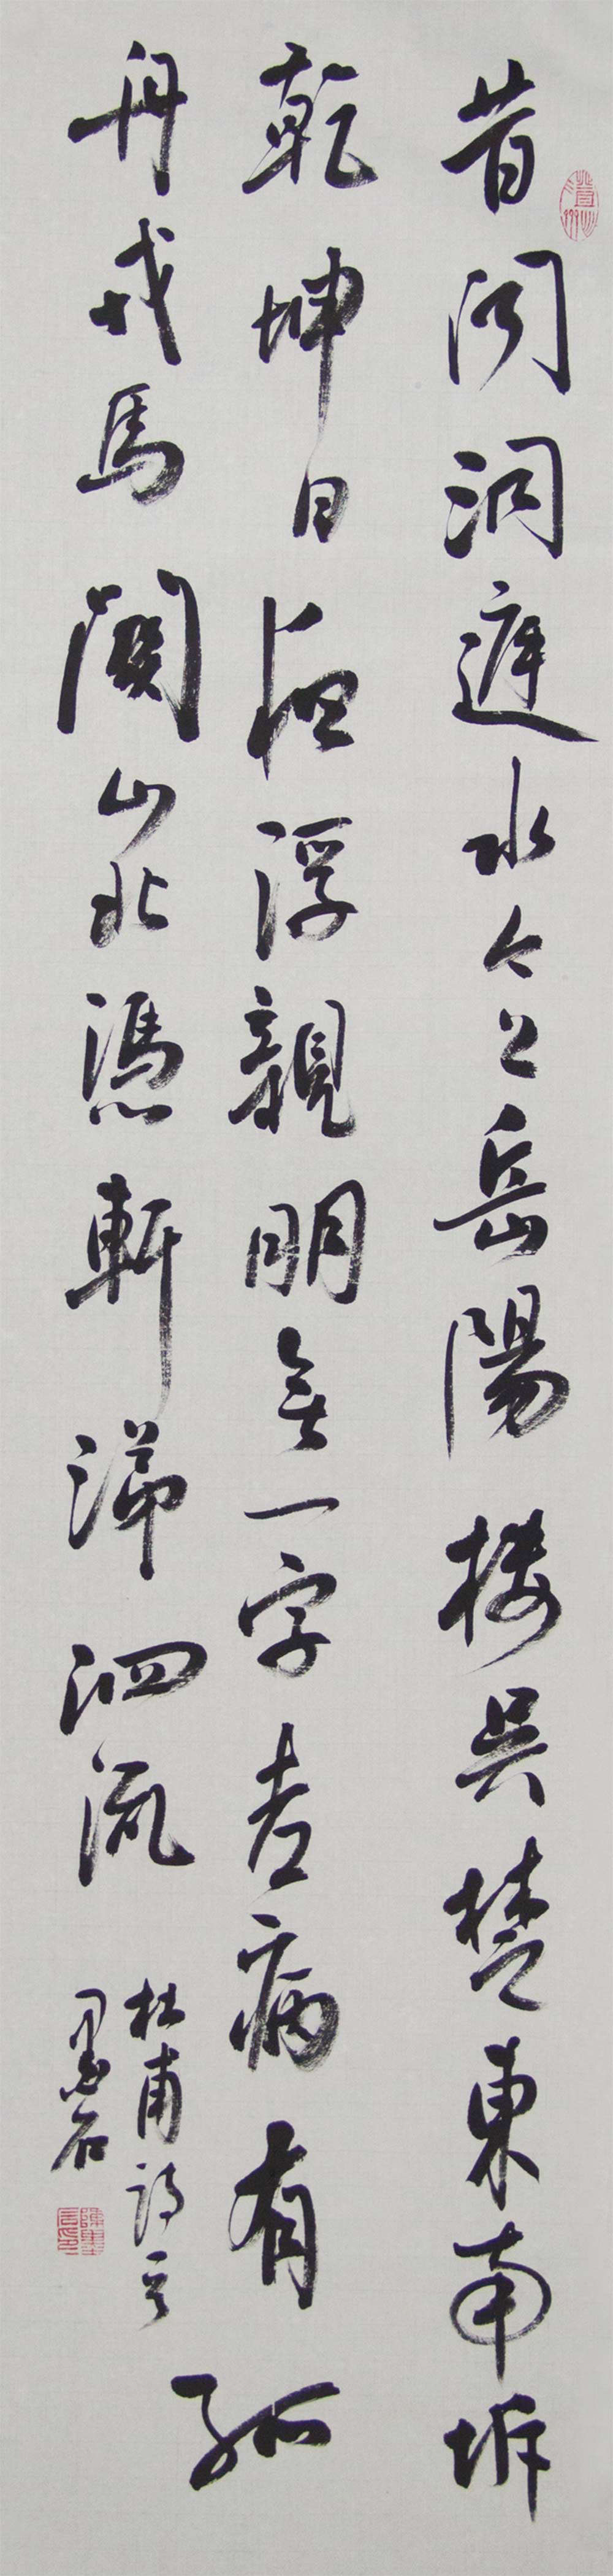 昔聞洞庭水今上岳陽樓吳楚東南坼
乾坤日夜浮親朋無一字老病有孤
舟戎馬關山北憑軒涕泗流
杜甫詩
墨石